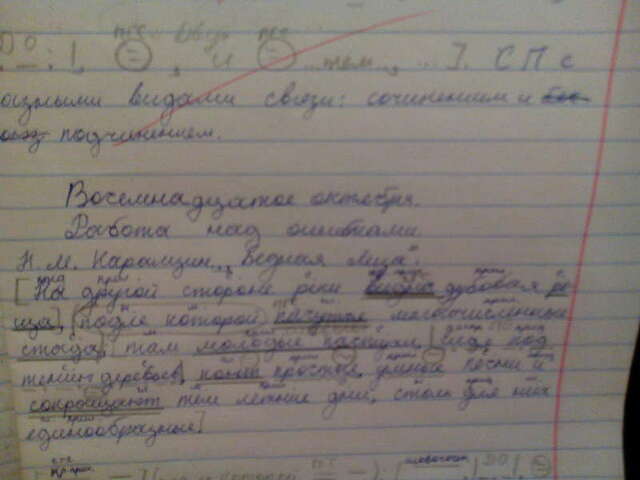 и ... тем..., ... ]. СПс
разными видами связи: сочинением и бес
подчинением.
Восемнадцатое октября.
Работа над ошибками.
Н. М. Карамзин „Бедная Лиза".
[На другой стороне реки видна дубовая ро
ща], (подле которой пасутся многочисленные
стада), [там молодые пастухи, сидя под
тению деревьев, поют простые, унылые песни и
сокращают тем летние дни, столь для них
единообразные]